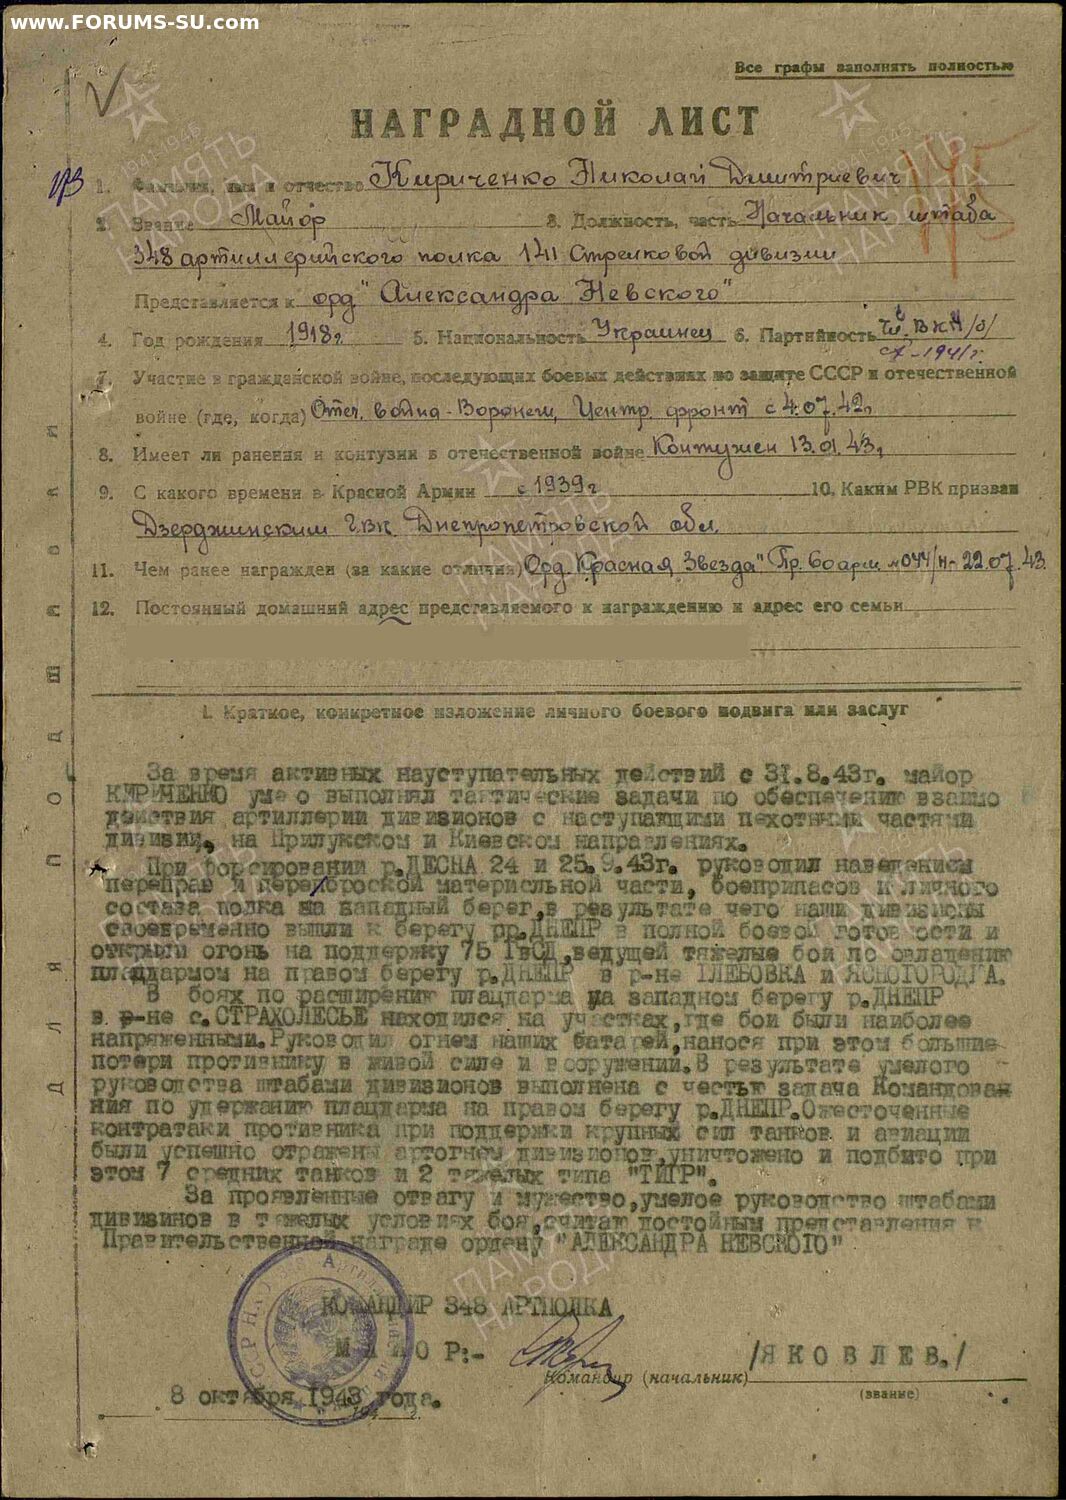 www.FORUMS-SU.com
Все графы заполнять полностью
НАГРАДНОЙ ЛИСТ
1. Фамилия, имя и отчество Кириченко Николай Дмитриевич
2. Звание Майор 3. Должность, часть Начальник штаба
348 артиллерийского полка 141 Стрелковой дивизии
Представляется к орд "Александра Невского"
4. Год рождения 1918г 5. Национальность Украинец 6. Партийность чл. ВКП/б/
с 1941г.
7. Участие в гражданской войне, последующих боевых действиях по защите СССР и отечественной
войне (где, когда) Отеч. война - Воронеж, Центр. фронт с 4.07.42г
8. Имеет ли ранения и контузии в отечественной войне Контужен 13.01.43г
9. С какого времени в Красной Армии с 1939г 10. Каким РВК призван
Дзерджинским ГВК Днепропетровской обл.
11. Чем ранее награжден (за какие отличия) Орд. Красная Звезда" Пр. 60 арм. №044/н - 22.07.43.
12. Постоянный домашний адрес представляемого к награждению и адрес его семьи
I. Краткое, конкретное изложение личного боевого подвига или заслуг
За время активных науступательных действий с 31.8.43г. майор
КИРИЧЕНКО уме о выполнял тактические задачи по обеспечению взаимо
действия артиллерии дивизионов с наступающими пехотными частями
дивизии, на Прилукском и Киевском направлениях.
При форсировании р.ДЕСНА 24 и 25.9.43г. руководил наведением
переправ и переброской материсльной части, боеприпасов и личного
состава полка на западный берег, в результате чего наши дивизионы
своевременно вышли к берегу рр.ДНЕПР в полной боевой готовности и
открыли огонь на поддержку 75 ГвСД, ведущей тяжелые бои по овладению
плацдармом на правом берегу р.ДНЕПР в р-не ГЛЕБОВКА и ЯСНОГОРОДГА.
В боях по расширению плацдарма на западном берегу р.ДНЕПР
в р-не с.СТРАХОЛЕСЬЕ находился на участках, где бои были наиболее
напряженными. Руководил огнем наших батарей, нанося при этом большие
потери противнику в живой силе и вооружении. В результате умелого
руководства штабами дивизионов выполнена с честью задача Командова-
ния по удержанию плацдарма на правом берегу р.ДНЕПР. Ожесточенные
контратаки противника при поддержки крупных сил танков и авиации
были успешно отражены артогнем дивизионов, уничтожено и подбито при
этом 7 средних танков и 2 тяжелых типа "ТИГР".
За проявленные отвагу и мужество, умелое руководство штабами
дивизинов в тяжелых условиях боя, считаю достойным представления к
Правительственной награде ордену "АЛЕКСАНДРА НЕВСКОГО"
КОМАНДИР 348 АРТПОЛКА
МАЙОР:-
/ЯКОВЛЕВ./
Командир (начальник)
(звание)
8 октября 1943 года.
194 г.
для подшивания
ПАМЯТЬ НАРОДА
1941-1945